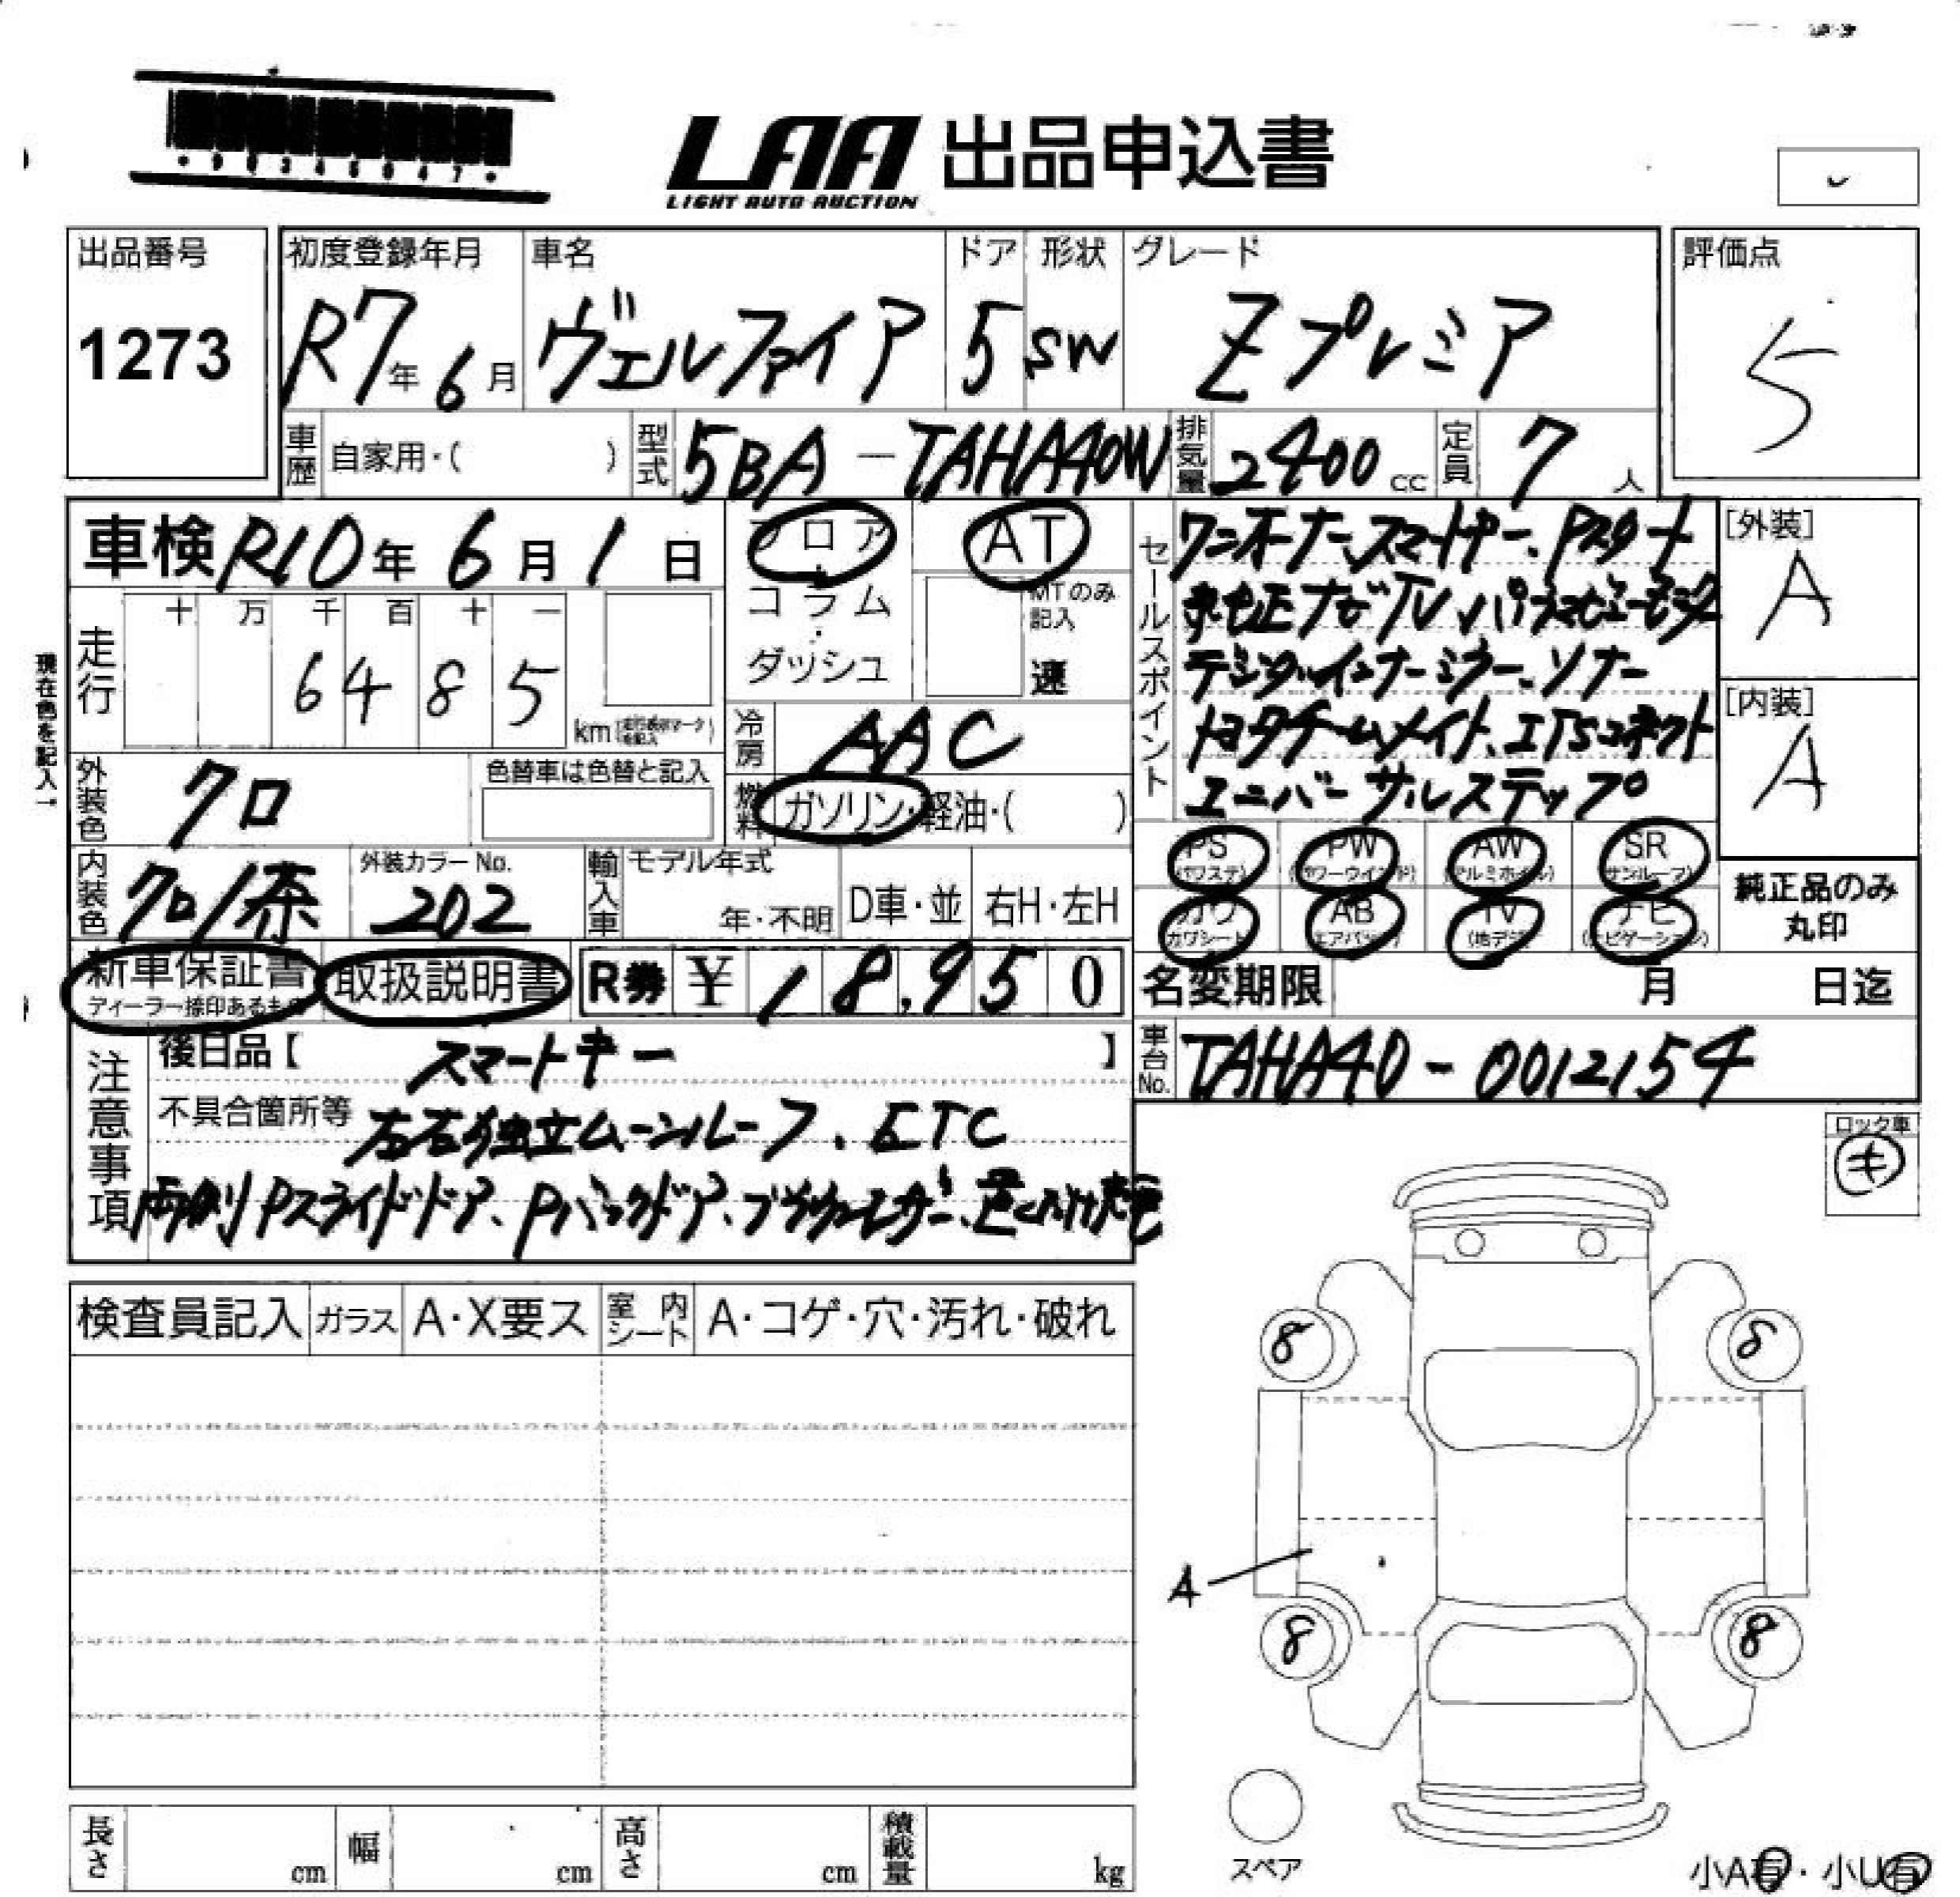 LAA 出品申込書
LIGHT AUTO AUCTION
出品番号 初度登録年月 車名 ドア 形状 グレード 評価点
1273 R7年6月 ヴェルファイア 5 SW Zプレミア 5
車歴 自家用・( ) 型式 5BA-TAHA40W 排気量 2400cc 定員 7人
車検 R10年6月1日 フロア・コラム・ダッシュ AT MTのみ記入 速
セールスポイント
ワンオーナー、スマートキー、Pスタート
純正ナビTV パノラマビューモニター
デジタルインナーミラー、ソナー
トヨタチームメイト、ITSコネクト
ユニバーサルステップ
[外装] A
[内装] A
走行 十 万 千 百 十 一
6485 km
現在色を記入→
冷房 AAC
外装色 クロ 色替車は色替と記入
燃料 ガソリン・軽油・( )
内装色 クロ/茶 外装カラーNo. 202 輸入車 モデル年式 年・不明 D車・並 右H・左H
PS (パワステ) PW (パワーウインド) AW (アルミホイル) SR (サンルーフ)
カワ (カワシート) AB (エアバッグ) TV (地デジ) ナビ (ナビゲーション)
純正品のみ丸印
新車保証書 ディーラー捺印あるもの 取扱説明書 R券 ¥18,950
名変期限 月 日迄
注意事項 後日品【 スマートキー 】
車台No. TAHA40-0012154
不具合箇所等 左右独立ムーンルーフ、ETC
両側Pスライドドア、Pバックドア、
ロック車
キ
検査員記入 ガラス A・X要ス 室内シート A・コゲ・穴・汚れ・破れ
8 8
A
8 8
スペア
長さ cm 幅 cm 高さ cm 積載量 kg
小A有・小U有